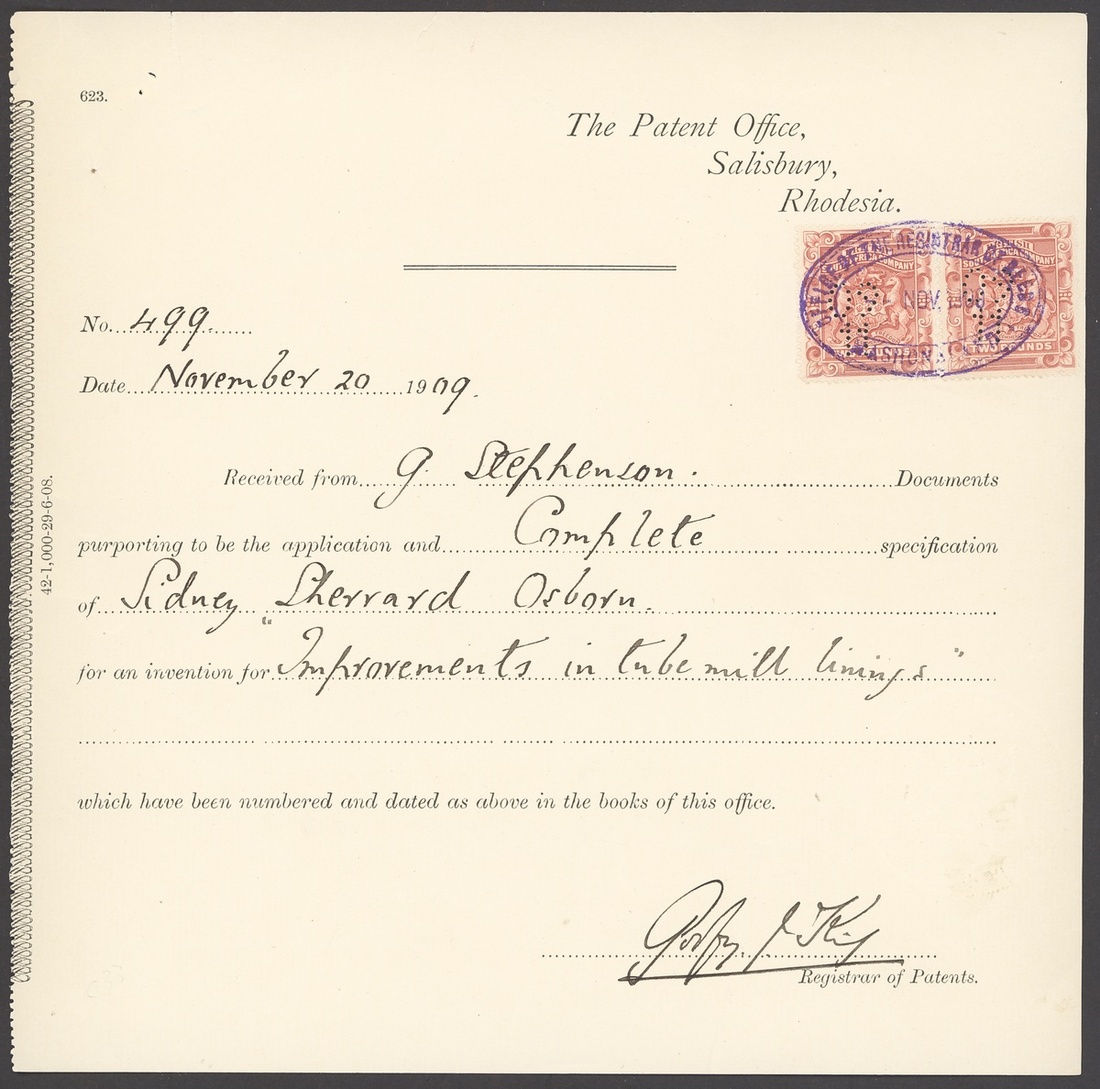 623.
The Patent Office,
Salisbury,
Rhodesia.
OFFICE OF THE REGISTRAR OF
NOV.
AFRICA COMPANY
SOUTH AFRICA COMPANY
TWO POUNDS
No. 499.
Date November 20 1909.
Received from G. Stephenson. Documents
purporting to be the application and Complete specification
of Sidney Sherrard Osborn.
for an invention for "Improvements in tube mill linings"
which have been numbered and dated as above in the books of this office.
Godfrey J King
Registrar of Patents.
42-1,000-29-6-08.